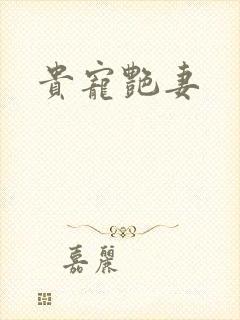 貴寵艷妻
嘉麗